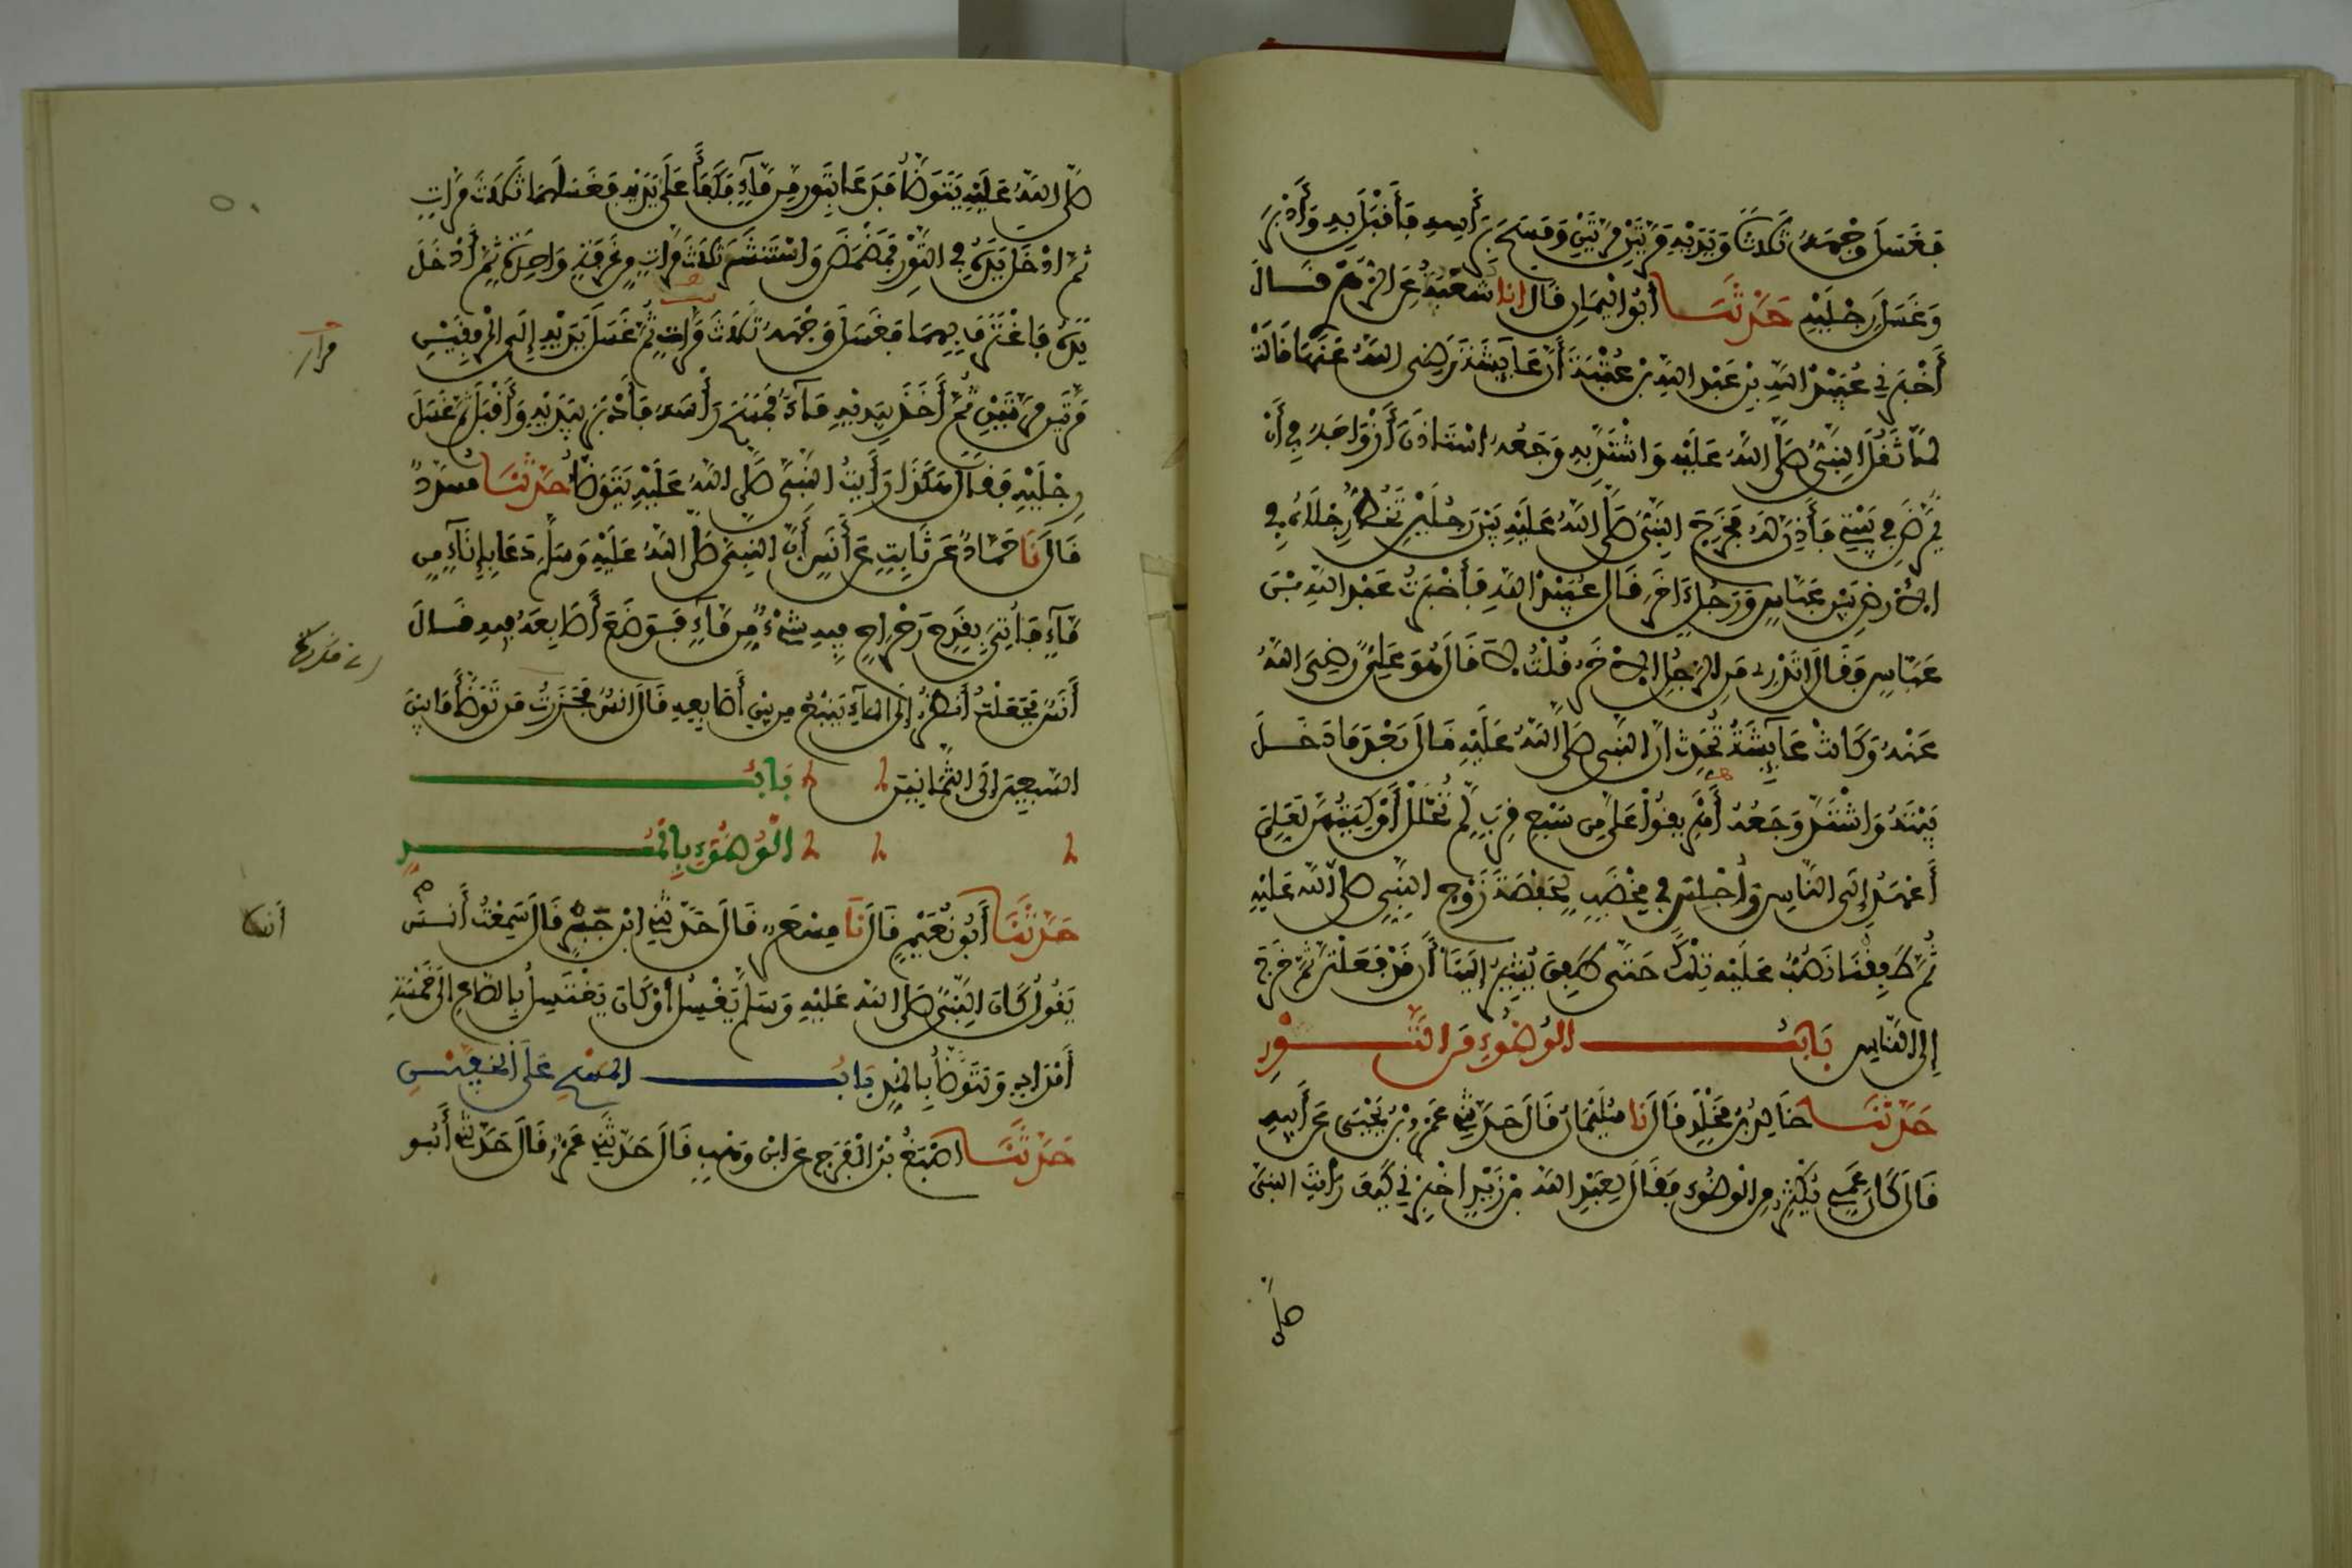 فَغَسَلَ وَجْهَهُ ثَلَاثًا وَيَدَيْهِ مَرَّتَيْنِ مَرَّتَيْنِ وَمَسَحَ بِرَأْسِهِ فَأَقْبَلَ بِهِ وَأَدْبَرَ
وَغَسَلَ رِجْلَيْهِ حَدَّثَنَا أَبُو الْيَمَانِ قَالَ انا شُعَيْبٌ عَنِ الزُّهْرِيِّ قَالَ
أَخْبَرَنِي عُبَيْدُ اللهِ بْنُ عَبْدِ اللهِ بْنِ عُتْبَةَ أَنَّ عَائِشَةَ رَضِيَ اللهُ عَنْهَا قَالَتْ
لَمَّا ثَقُلَ النَّبِيُّ صَلَّى اللهُ عَلَيْهِ وَاشْتَدَّ بِهِ وَجَعُهُ اسْتَأْذَنَ أَزْوَاجَهُ فِي أَنْ
يُمَرَّضَ فِي بَيْتِي فَأَذِنَّ لَهُ فَخَرَجَ النَّبِيُّ صَلَّى اللهُ عَلَيْهِ بَيْنَ رَجُلَيْنِ تَخُطُّ رِجْلَاهُ فِي
الْأَرْضِ بَيْنَ عَبَّاسٍ وَرَجُلٍ آخَرَ قَالَ عُبَيْدُ اللهِ فَأَخْبَرْتُ عَبْدَ اللهِ بْنَ
عَبَّاسٍ فَقَالَ أَتَدْرِي مَنِ الرَّجُلُ الْآخَرُ قُلْتُ لَا قَالَ هُوَ عَلِيٌّ رَضِيَ اللهُ
عَنْهُ وَكَانَتْ عَائِشَةُ تُحَدِّثُ أَنَّ النَّبِيَّ صَلَّى اللهُ عَلَيْهِ قَالَ بَعْدَ مَا دَخَلَ
بَيْتَهُ وَاشْتَدَّ وَجَعُهُ أَهْرِيقُوا عَلَيَّ مِنْ سَبْعِ قِرَبٍ لَمْ تُحْلَلْ أَوْكِيَتُهُنَّ لَعَلِّي
أَعْهَدُ إِلَى النَّاسِ وَأُجْلِسَ فِي مِخْضَبٍ لِحَفْصَةَ زَوْجِ النَّبِيِّ صَلَّى اللهُ عَلَيْهِ
ثُمَّ طَفِقْنَا نَصُبُّ عَلَيْهِ تِلْكَ حَتَّى طَفِقَ يُشِيرُ إِلَيْنَا أَنْ قَدْ فَعَلْتُنَّ ثُمَّ خَرَجَ
إِلَى النَّاسِ بَابُ الْوُضُوءِ مِنَ التَّوْرِ
حَدَّثَنَا خَالِدُ بْنُ مَخْلَدٍ قَالَ نَا سُلَيْمَانُ قَالَ حَدَّثَنِي عَمْرُو بْنُ يَحْيَى عَنْ أَبِيهِ
قَالَ كَانَ عَمِّي يُكْثِرُ مِنَ الْوُضُوءِ فَقَالَ لِعَبْدِ اللهِ بْنِ زَيْدٍ أَخْبِرْنِي كَيْفَ رَأَيْتَ النَّبِيَّ
صَلَّى
صَلَّى اللهُ عَلَيْهِ يَتَوَضَّأُ فَدَعَا بِتَوْرٍ مِنْ مَاءٍ فَكَفَأَ عَلَى يَدَيْهِ فَغَسَلَهُمَا ثَلَاثَ مَرَّاتٍ
ثُمَّ أَدْخَلَ يَدَهُ فِي التَّوْرِ فَمَضْمَضَ وَاسْتَنْثَرَ ثَلَاثَ مَرَّاتٍ مِنْ غَرْفَةٍ وَاحِدَةٍ ثُمَّ أَدْخَلَ
يَدَهُ فَاغْتَرَفَ بِهِمَا فَغَسَلَ وَجْهَهُ ثَلَاثَ مَرَّاتٍ ثُمَّ غَسَلَ يَدَيْهِ إِلَى الْمِرْفَقَيْنِ
مرار
مَرَّتَيْنِ مَرَّتَيْنِ ثُمَّ أَخَذَ بِيَدَيْهِ مَاءً فَمَسَحَ رَأْسَهُ فَأَدْبَرَ بِيَدَيْهِ وَأَقْبَلَ ثُمَّ غَسَلَ
رِجْلَيْهِ فَقَالَ هَكَذَا رَأَيْتُ النَّبِيَّ صَلَّى اللهُ عَلَيْهِ يَتَوَضَّأُ حَدَّثَنَا مُسَدَّدٌ
قَالَ نَا حَمَّادٌ عَنْ ثَابِتٍ عَنْ أَنَسٍ أَنَّ النَّبِيَّ صَلَّى اللهُ عَلَيْهِ وَسَلَّمَ دَعَا بِإِنَاءٍ مِنْ
مَاءٍ فَأُتِيَ بِقَدَحٍ رَحْرَاحٍ فِيهِ شَيْءٌ مِنْ مَاءٍ فَوَضَعَ أَصَابِعَهُ فِيهِ قَالَ
أَنَسٌ فَجَعَلْتُ أَنْظُرُ إِلَى الْمَاءِ يَنْبُعُ مِنْ بَيْنِ أَصَابِعِهِ قَالَ أَنَسٌ فَحَزَرْتُ مَنْ تَوَضَّأَ مَا بَيْنَ
السَّبْعِينَ إِلَى الثَّمَانِينَ بَابُ
الْوُضُوءِ بِالْمُدِّ
حَدَّثَنَا أَبُو نُعَيْمٍ قَالَ نَا مِسْعَرٌ قَالَ حَدَّثَنِي ابْنُ جَبْرٍ قَالَ سَمِعْتُ أَنَسَ
أنسا
يَقُولُ كَانَ النَّبِيُّ صَلَّى اللهُ عَلَيْهِ وَسَلَّمَ يَغْسِلُ أَوْ كَانَ يَغْتَسِلُ بِالصَّاعِ إِلَى خَمْسَةِ
أَمْدَادٍ وَيَتَوَضَّأُ بِالْمُدِّ بَابُ الْمَسْحِ عَلَى الْخُفَّيْنِ
حَدَّثَنَا أَصْبَغُ بْنُ الْفَرَجِ عَنِ ابْنِ وَهْبٍ قَالَ حَدَّثَنِي عَمْرٌو قَالَ حَدَّثَنِي أَبُو